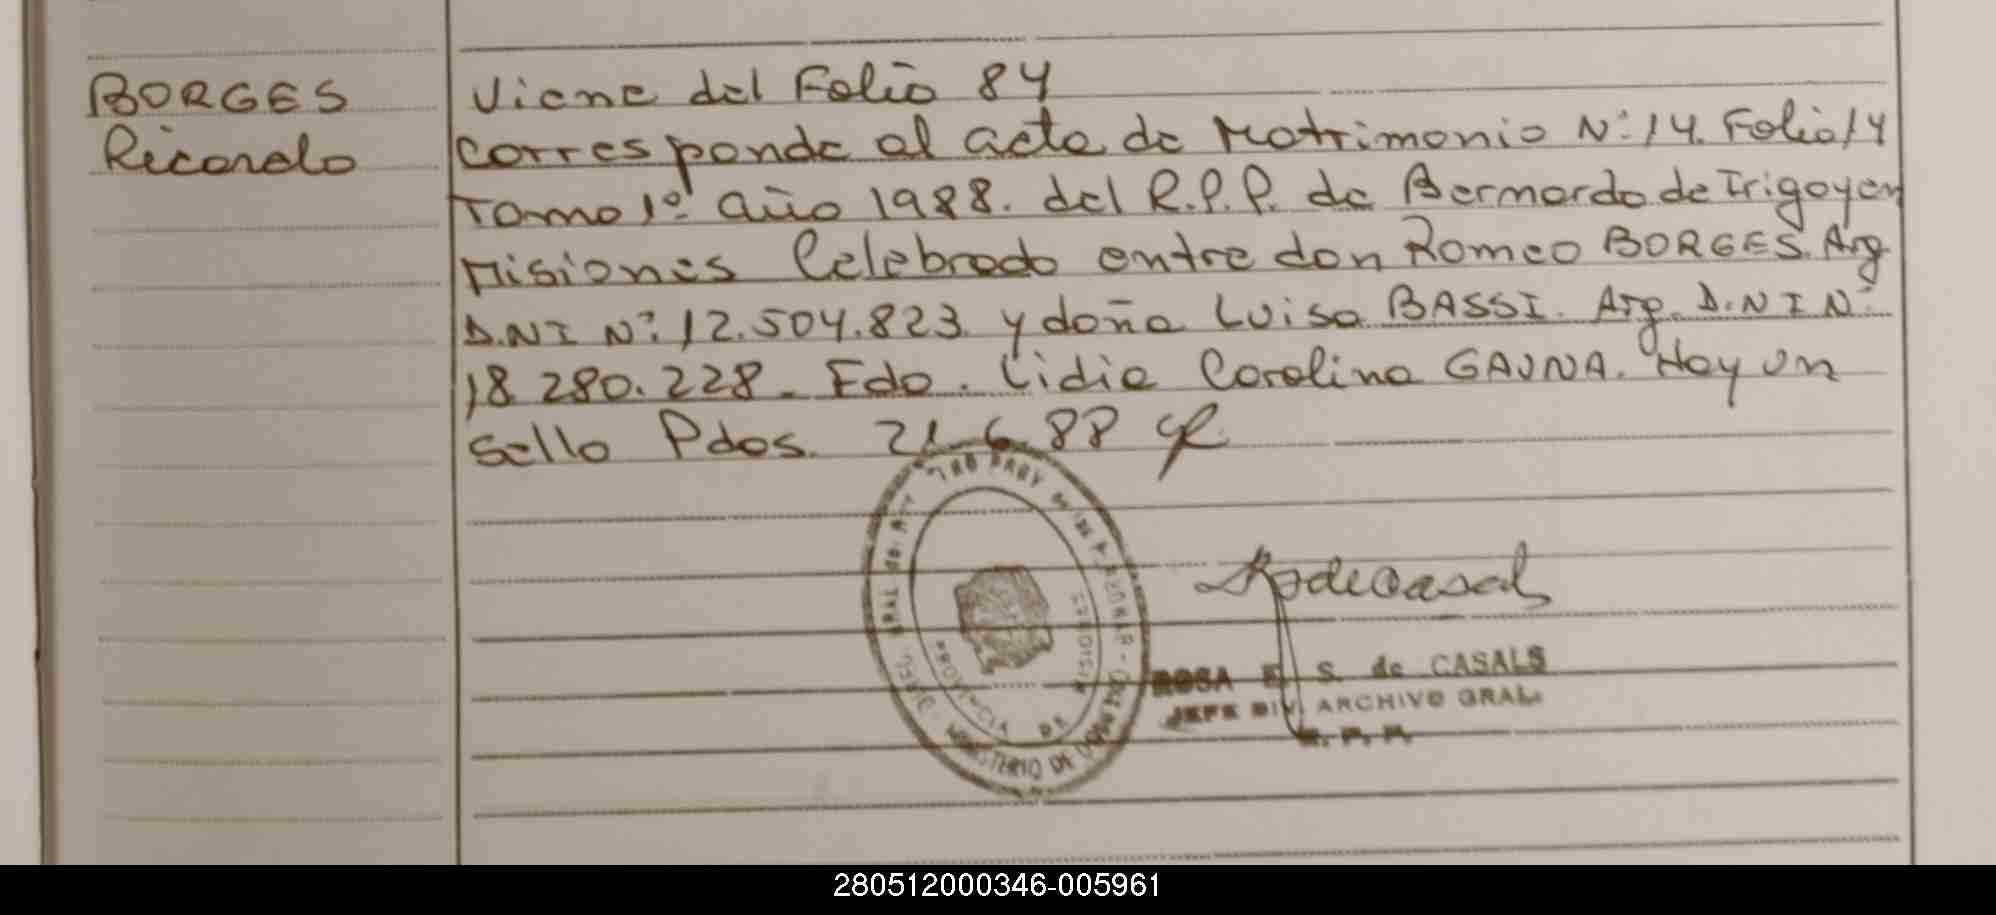 BORGES
Ricardo
Viene del Folio 84
corresponde al acta de Matrimonio Nº 14. Folio 14
Tomo 1º año 1988. del R.P.P. de Bernardo de Irigoyen
Misiones Celebrado entre don Romeo BORGES. Arg.
D.N I Nº 12.504.823 y doña Luisa BASSI. Arg. D.N I Nº
18 280.228. Fdo. Lidia Carolina GAUNA. Hay un
sello Pdos. 21-6 88
PROVINCIA DE MISIONES
MINISTERIO DE
ROSA E. S. de CASALS
JEFE DIV. ARCHIVO GRAL.
R. P. P.
280512000346-005961